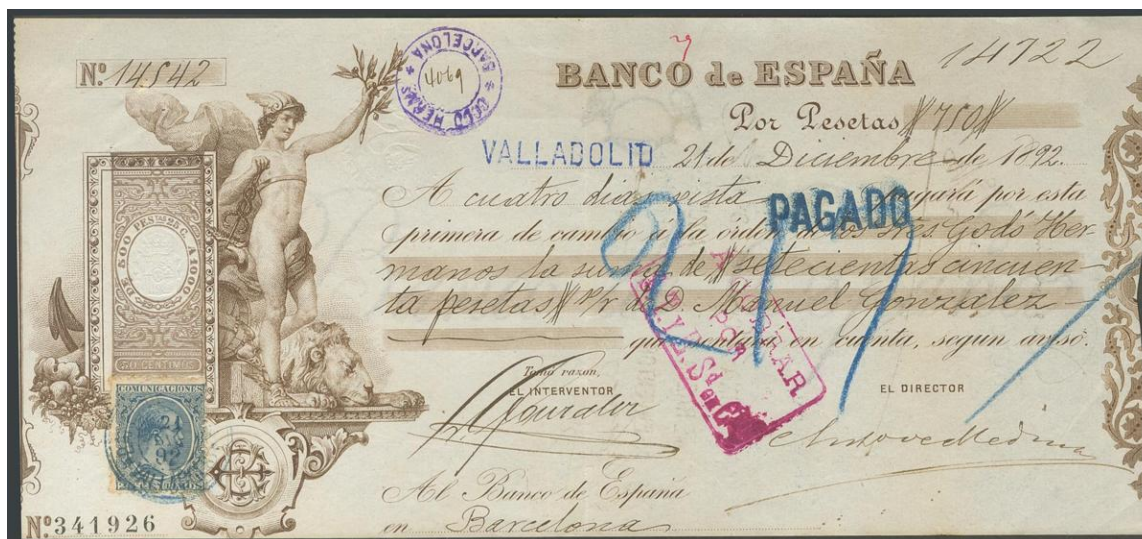 Nº 14542
GODÓ HERMS * BARCELONA *
4069
BANCO de ESPAÑA
14722
Por Pesetas 750
VALLADOLID 21 de Diciembre de 1892.
A cuatro días vista pagará por esta
PAGADO
primera de cambio á la órden de los Sres Godó Her-
manos la suma de setecientas cincuen-
ta pesetas v/r de D. Manuel Gonzalez
que sentará en cuenta, segun aviso.
A COBRAR
POR
DE 500 PESETAS 25 C. A 1000
50 CENTIMOS
Toma razon,
EL INTERVENTOR
EL DIRECTOR
COMUNICACIONES
21
DIC
92
Al Banco de España
en Barcelona
Nº 341926